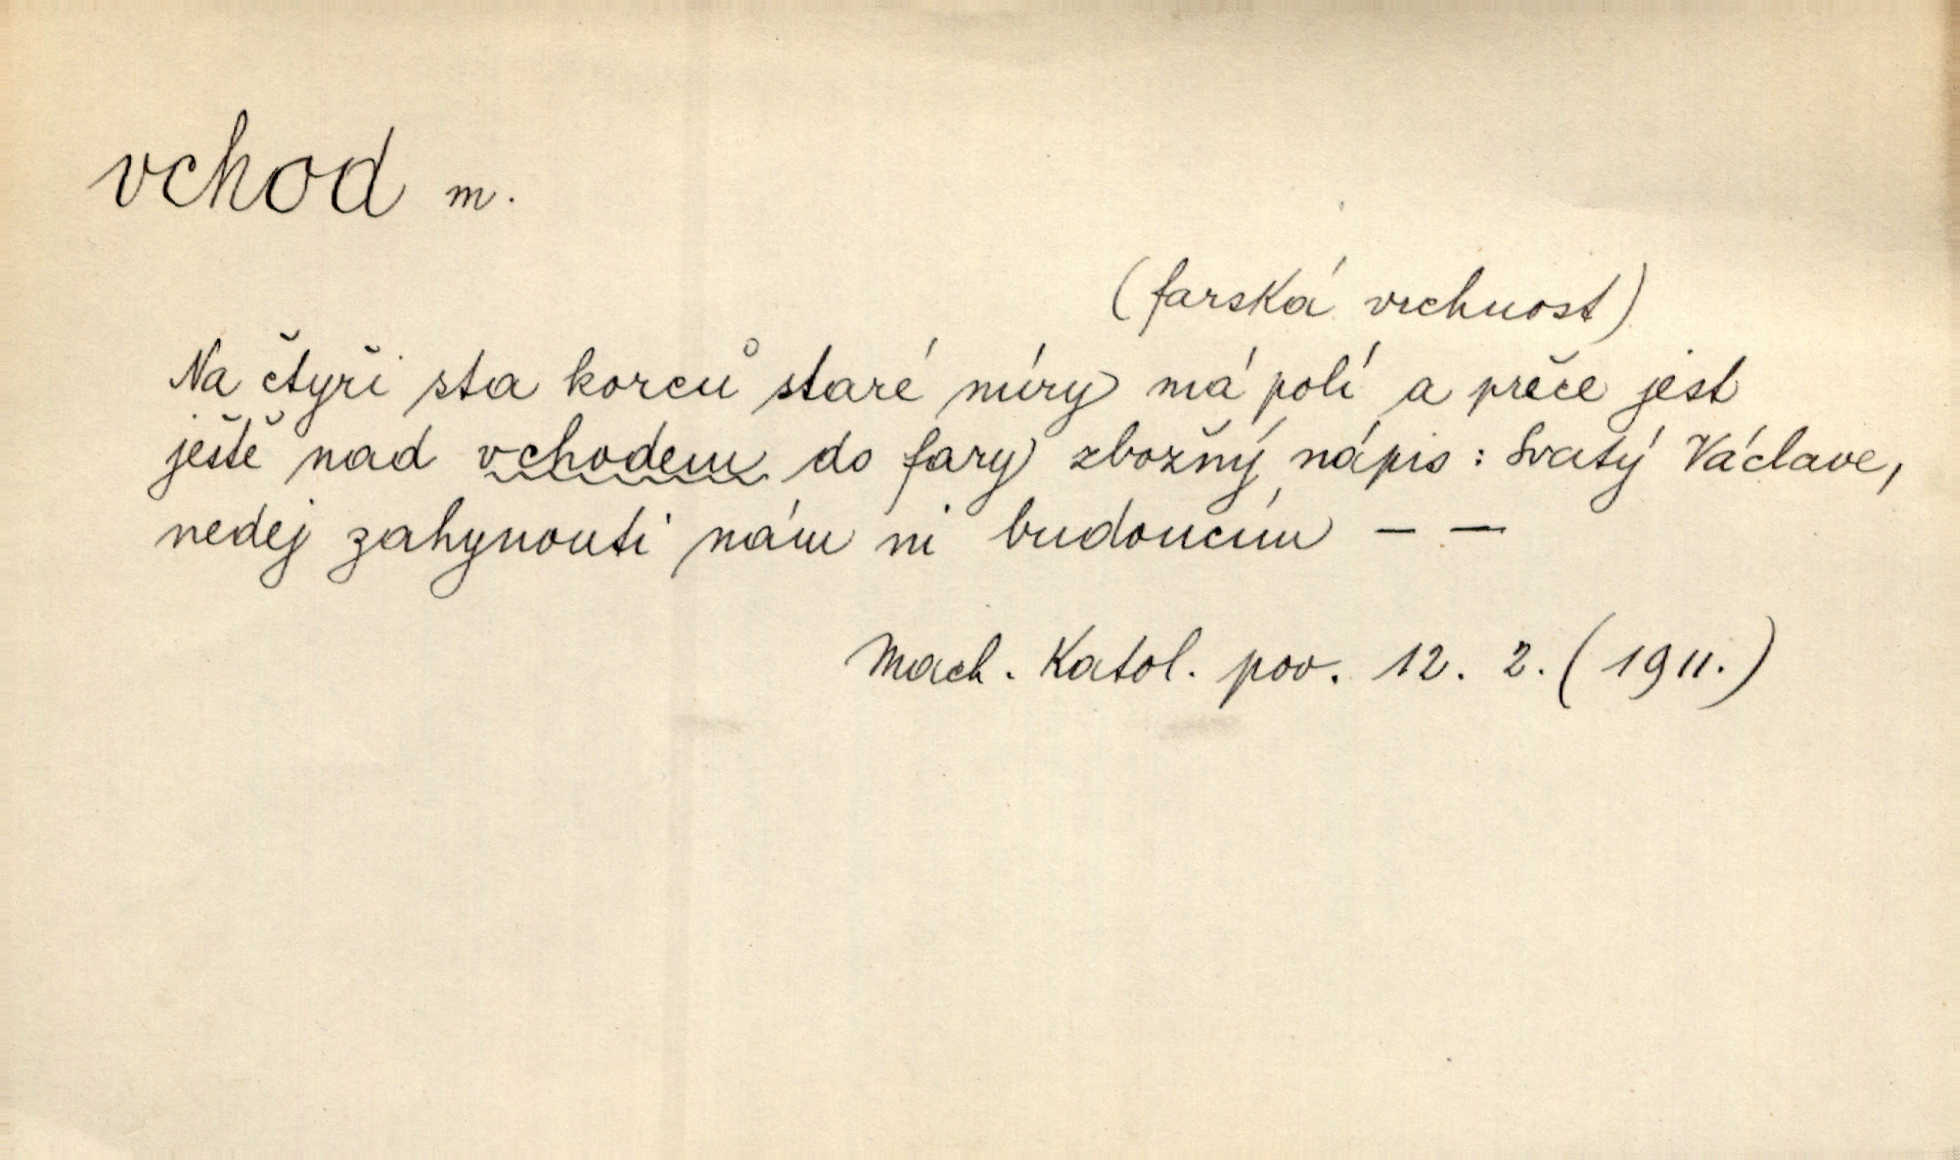 vchod m.
(farská vrchnost)
Na čtyři sta korců staré míry má polí a přece jest
ještě nad vchodem do fary zbožný nápis: Svatý Václave,
nedej zahynouti nám ni budoucím – –
Mach. Katol. pov. 12. 2. (1911.)